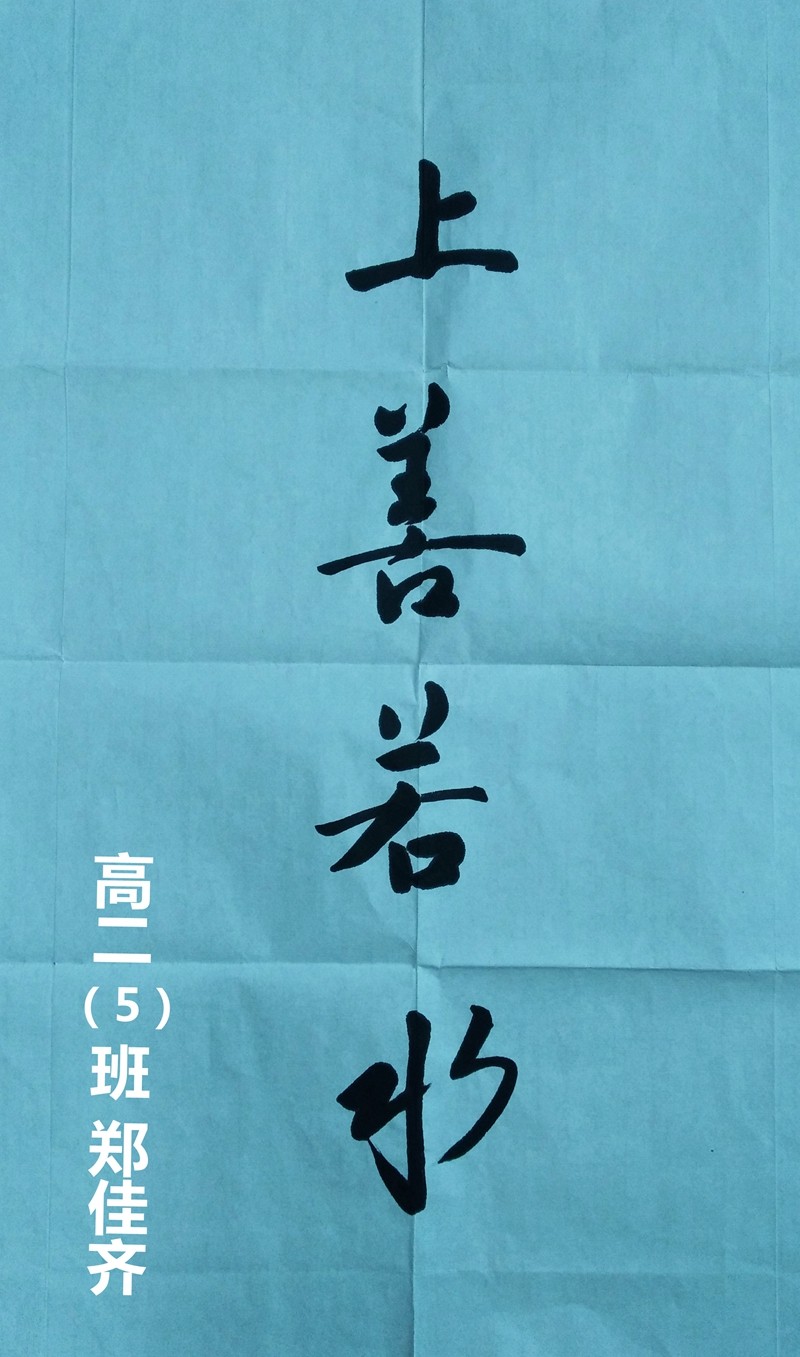 上善若水
高二（5）班 郑佳齐